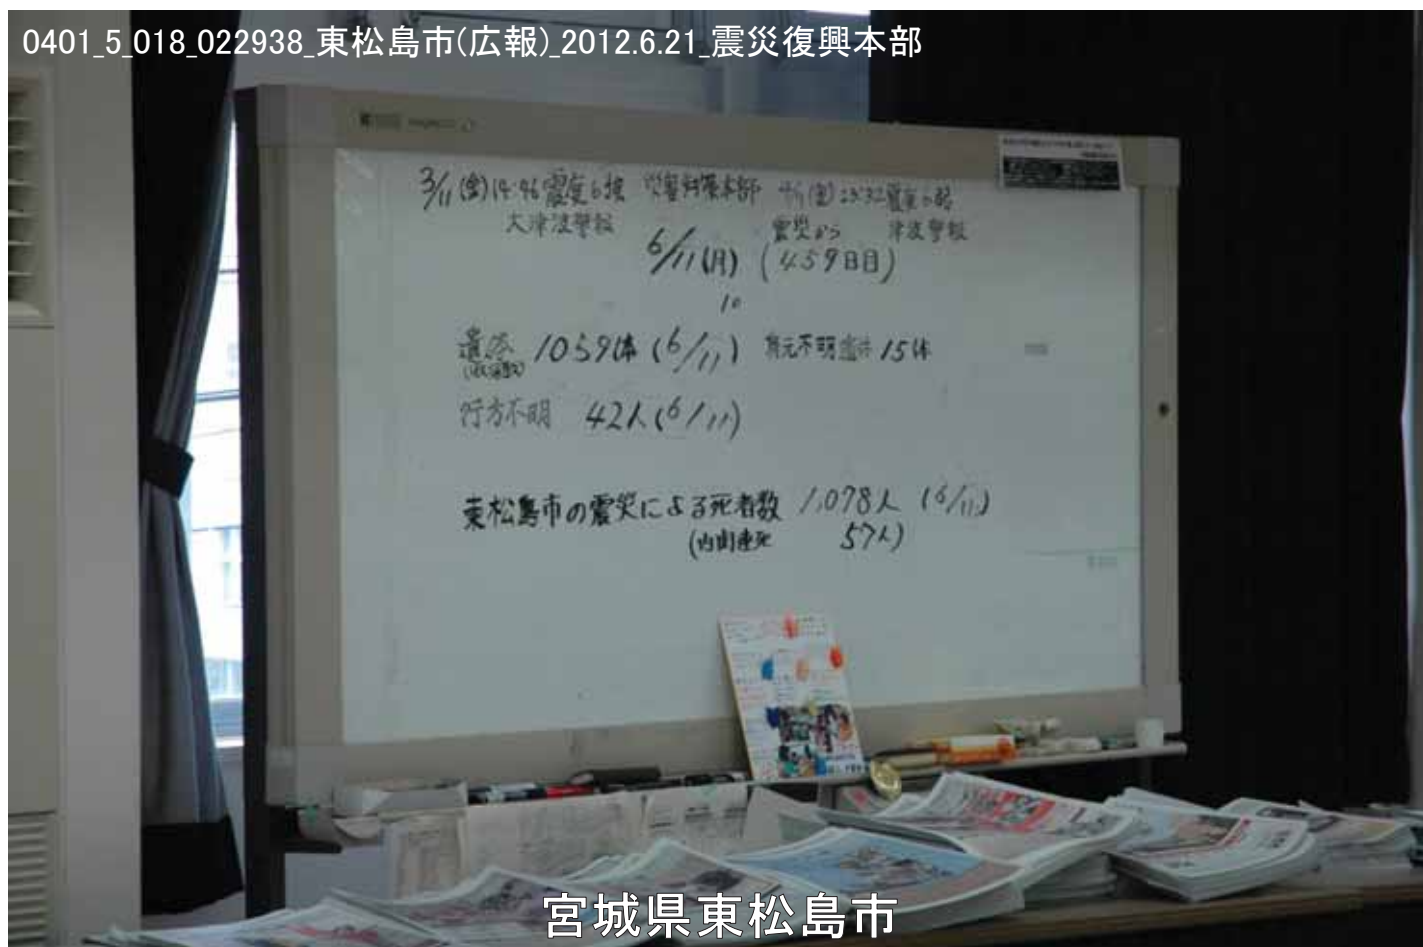 0401_5_018_022938_東松島市(広報)_2012.6.21_震災復興本部
3/11(金)14:46震度6強 災害対策本部 4/7(金)23:32震度6弱
大津波警報 震災から 津波警報
6/11(月) (459日目)
10
遺体 1059体(6/11) 身元不明遺体15体
(収容数)
行方不明 42人(6/11)
東松島市の震災による死者数 1,078人 (6/11)
(内関連死 57人)
宮城県東松島市